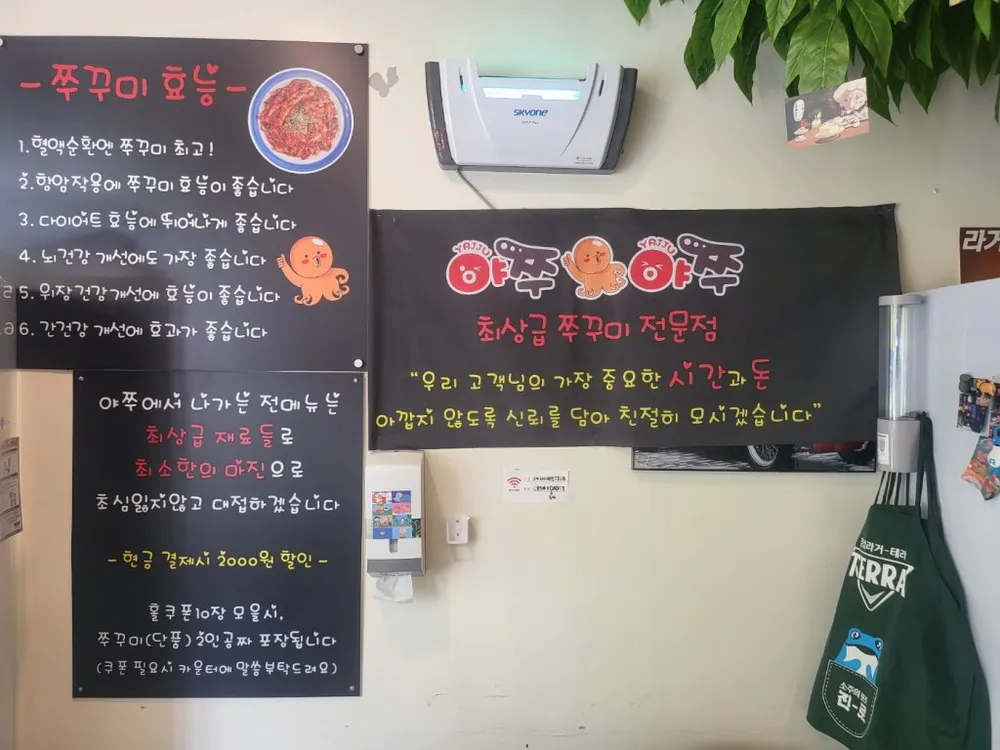 - 쭈꾸미 효능 -
1. 혈액순환엔 쭈꾸미 최고!
2. 항암작용에 쭈꾸미 효능이 좋습니다
3. 다이어트 효능에 뛰어나게 좋습니다
4. 뇌건강 개선에도 가장 좋습니다
5. 위장건강개선에 효능이 좋습니다
6. 간건강 개선에 효과가 좋습니다
야쭈에서 나가는 전메뉴는
최상급 재료들로
최소한의 마진으로
초심잃지않고 대접하겠습니다
- 현금 결제시 2000원 할인 -
홀쿠폰10장 모을시,
쭈꾸미(단품) 2인공짜 포장됩니다
(쿠폰 필요시 카운터에 말씀부탁드려요)
SKYONE
YAJJU YAJJU
야쭈 야쭈
최상급 쭈꾸미 전문점
"우리 고객님의 가장 중요한 시간과 돈
아깝지 않도록 신뢰를 담아 친절히 모시겠습니다"
라거
청정라거-테라
TERRA
소주의 원조
진-로